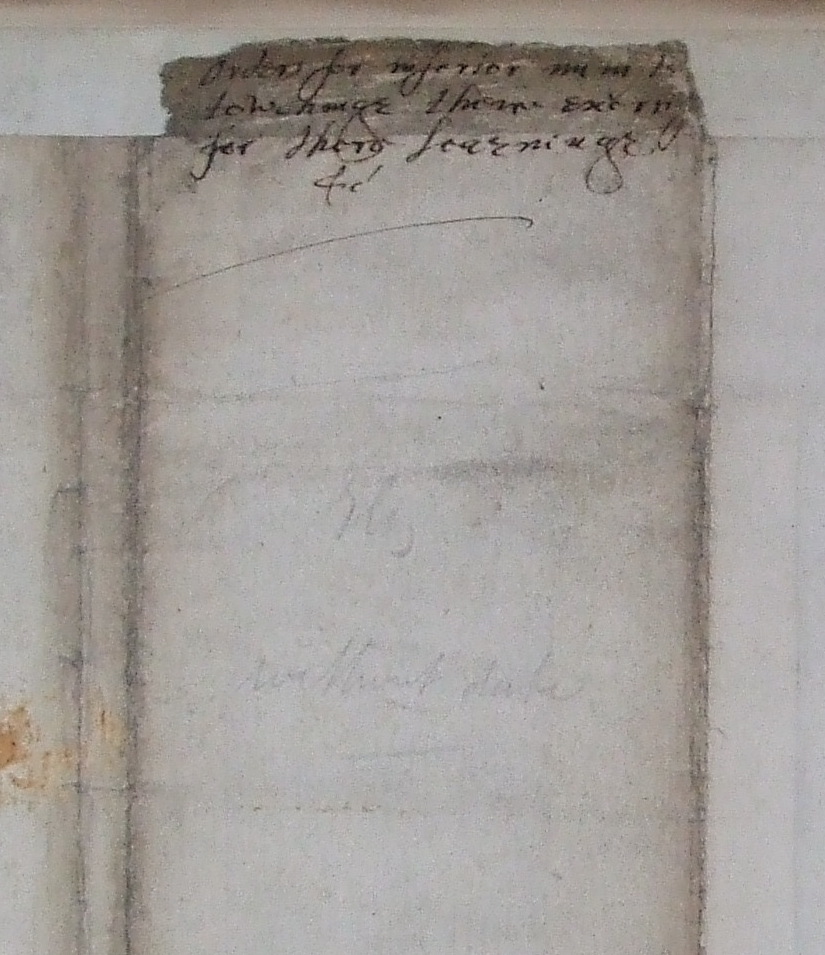 Orders for inferior minist
towchinge there exerci
for there Learninge
&c
without date